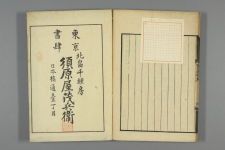 東京北畠千鍾房
書肆
須原屋茂兵衛
日本橋通壹丁目